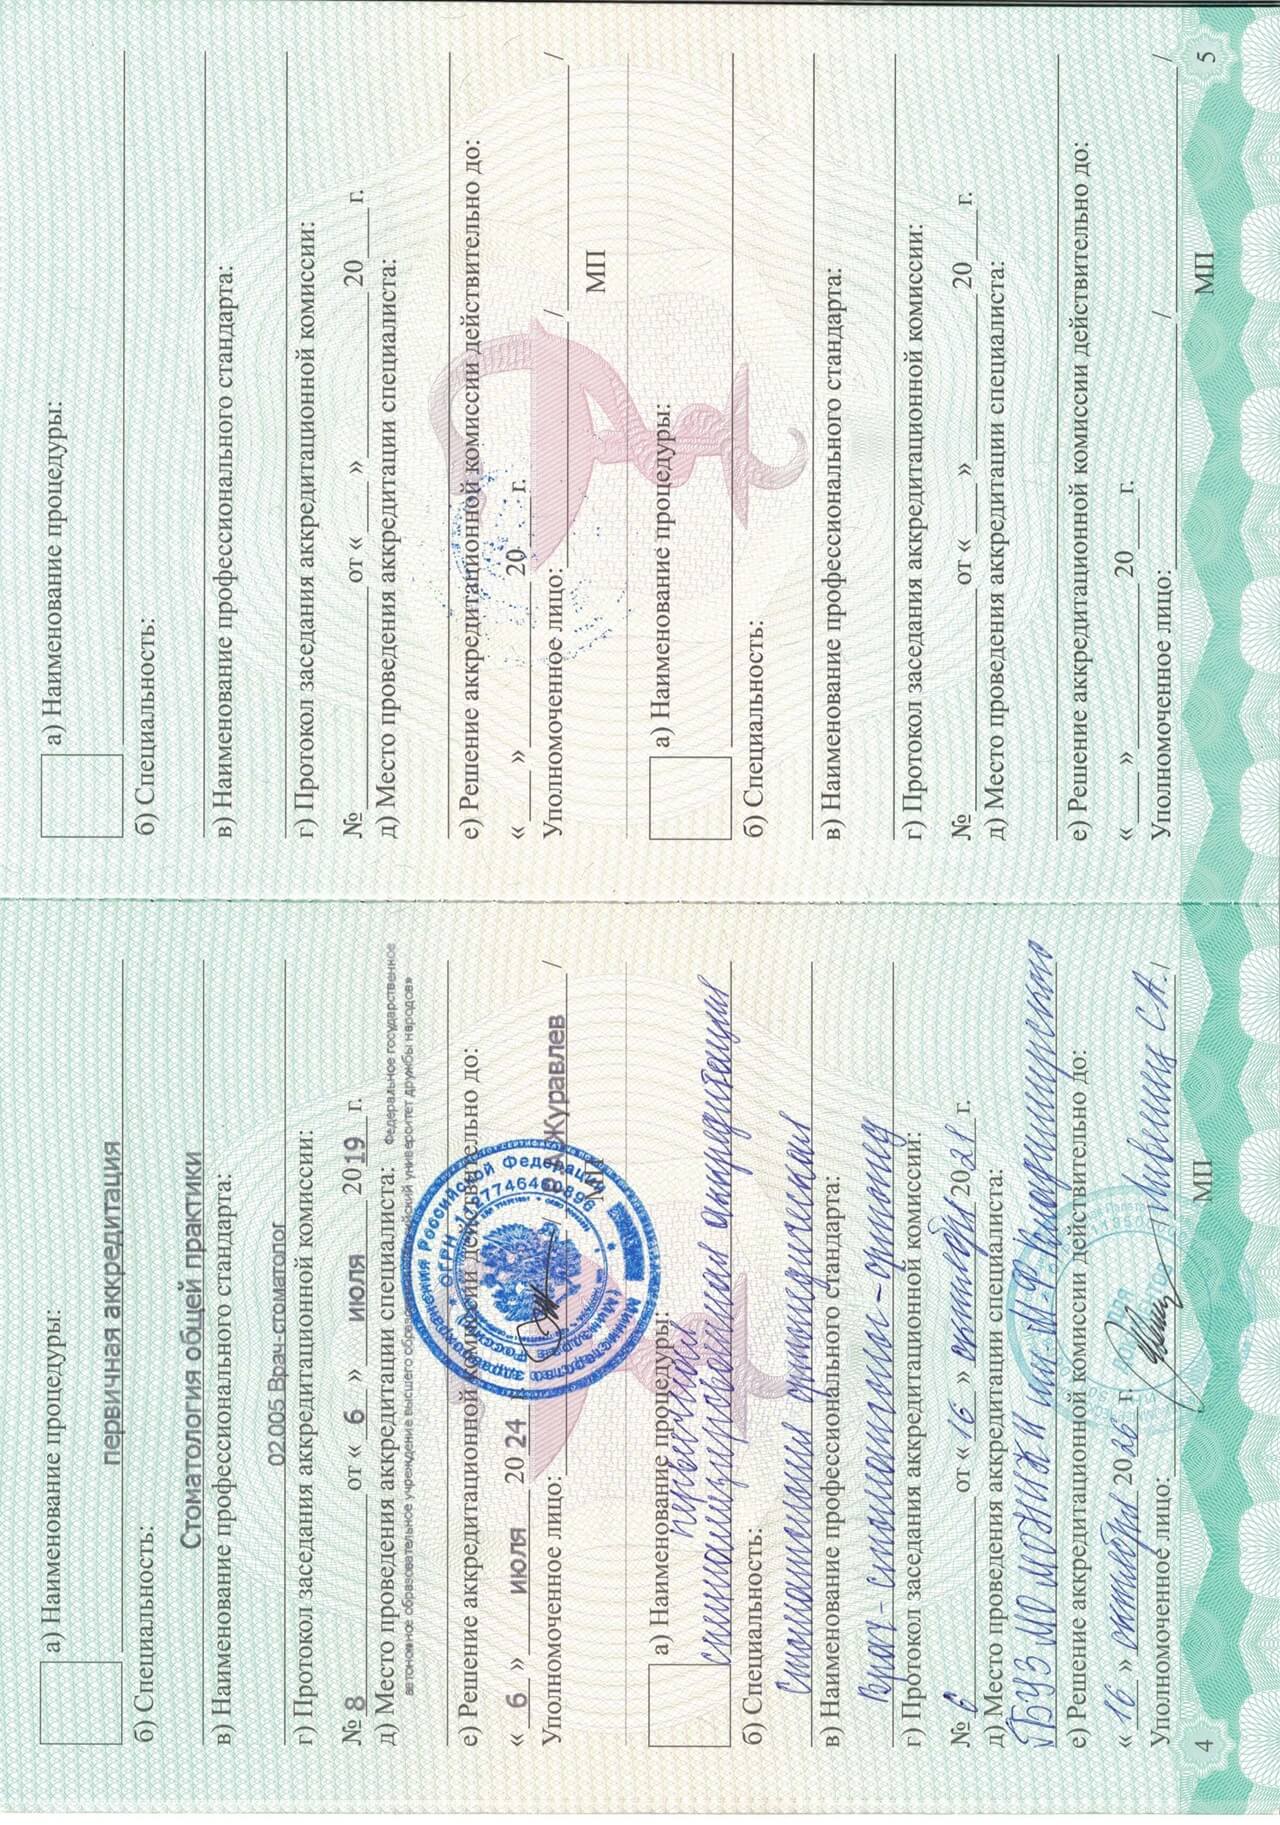 а) Наименование процедуры:
первичная аккредитация
б) Специальность:
Стоматология общей практики
в) Наименование профессионального стандарта:
02.005 Врач-стоматолог
г) Протокол заседания аккредитационной комиссии:
№ 8 от « 6 » июля 2019 г.
д) Место проведения аккредитации специалиста: Федеральное государственное
автономное образовательное учреждение высшего образования «Российский университет дружбы народов»
е) Решение аккредитационной комиссии действительно до:
« 6 » июля 2024 г.
Уполномоченное лицо: / А.Журавлев /
МП
Министерство здравоохранения Российской Федерации
(Минздрав России) * ОГРН 1127746460896
а) Наименование процедуры:
первичная
специализированная аккредитация
б) Специальность:
Стоматология ортопедическая
в) Наименование профессионального стандарта:
Врач-стоматолог-ортопед
г) Протокол заседания аккредитационной комиссии:
№ 6 от « 16 » октября 2021 г.
д) Место проведения аккредитации специалиста:
ГБУЗ МО МОНИКИ им. М.Ф. Владимирского
е) Решение аккредитационной комиссии действительно до:
« 16 » октября 2026 г.
Уполномоченное лицо: / Лившиц С.А. /
ДЛЯ
ДОКУМЕНТОВ
4
МП
а) Наименование процедуры:
б) Специальность:
в) Наименование профессионального стандарта:
г) Протокол заседания аккредитационной комиссии:
№ от « » 20 г.
д) Место проведения аккредитации специалиста:
е) Решение аккредитационной комиссии действительно до:
« » 20 г.
Уполномоченное лицо: / /
МП
а) Наименование процедуры:
б) Специальность:
в) Наименование профессионального стандарта:
г) Протокол заседания аккредитационной комиссии:
№ от « » 20 г.
д) Место проведения аккредитации специалиста:
е) Решение аккредитационной комиссии действительно до:
« » 20 г.
Уполномоченное лицо: / /
МП
5